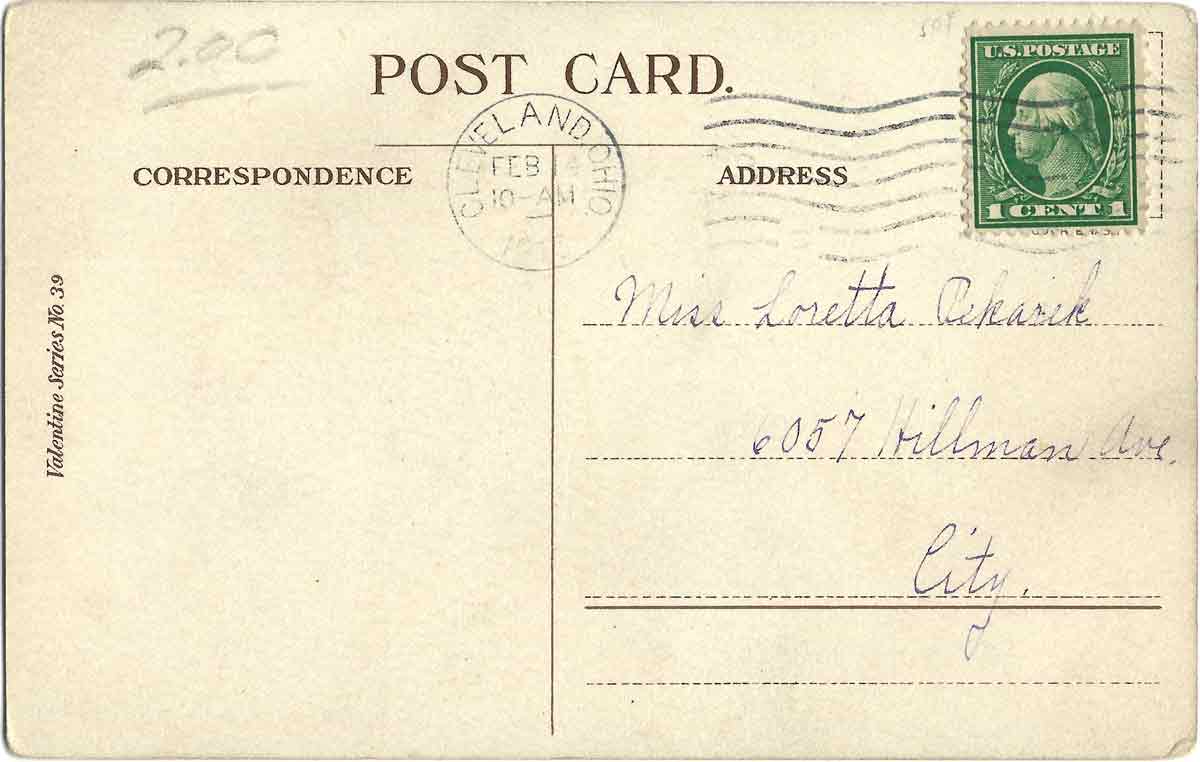 2.00
POST CARD.
U.S. POSTAGE
1 CENT 1
CLEVELAND, OHIO.
FEB 14
10-AM
CORRESPONDENCE
ADDRESS
Valentine Series No. 39
Miss Loretta Pekarek
6057 Hillman Ave.
City.